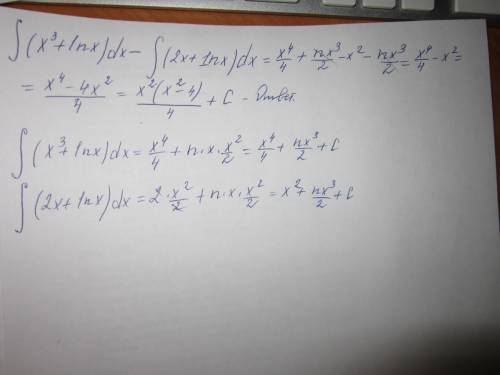 ∫(x³+lnx)dx − ∫(2x+lnx)dx = x⁴/4 + nx³/2 − x² − nx³/2 = x⁴/4 − x² =
= (x⁴−4x²)/4 = x²(x²−4)/4 + C - Ответ.
∫(x³+lnx)dx = x⁴/4 + n·x·x²/2 = x⁴/4 + nx³/2 + C
∫(2x+lnx)dx = 2·x²/2 + n·x·x²/2 = x² + nx³/2 + C